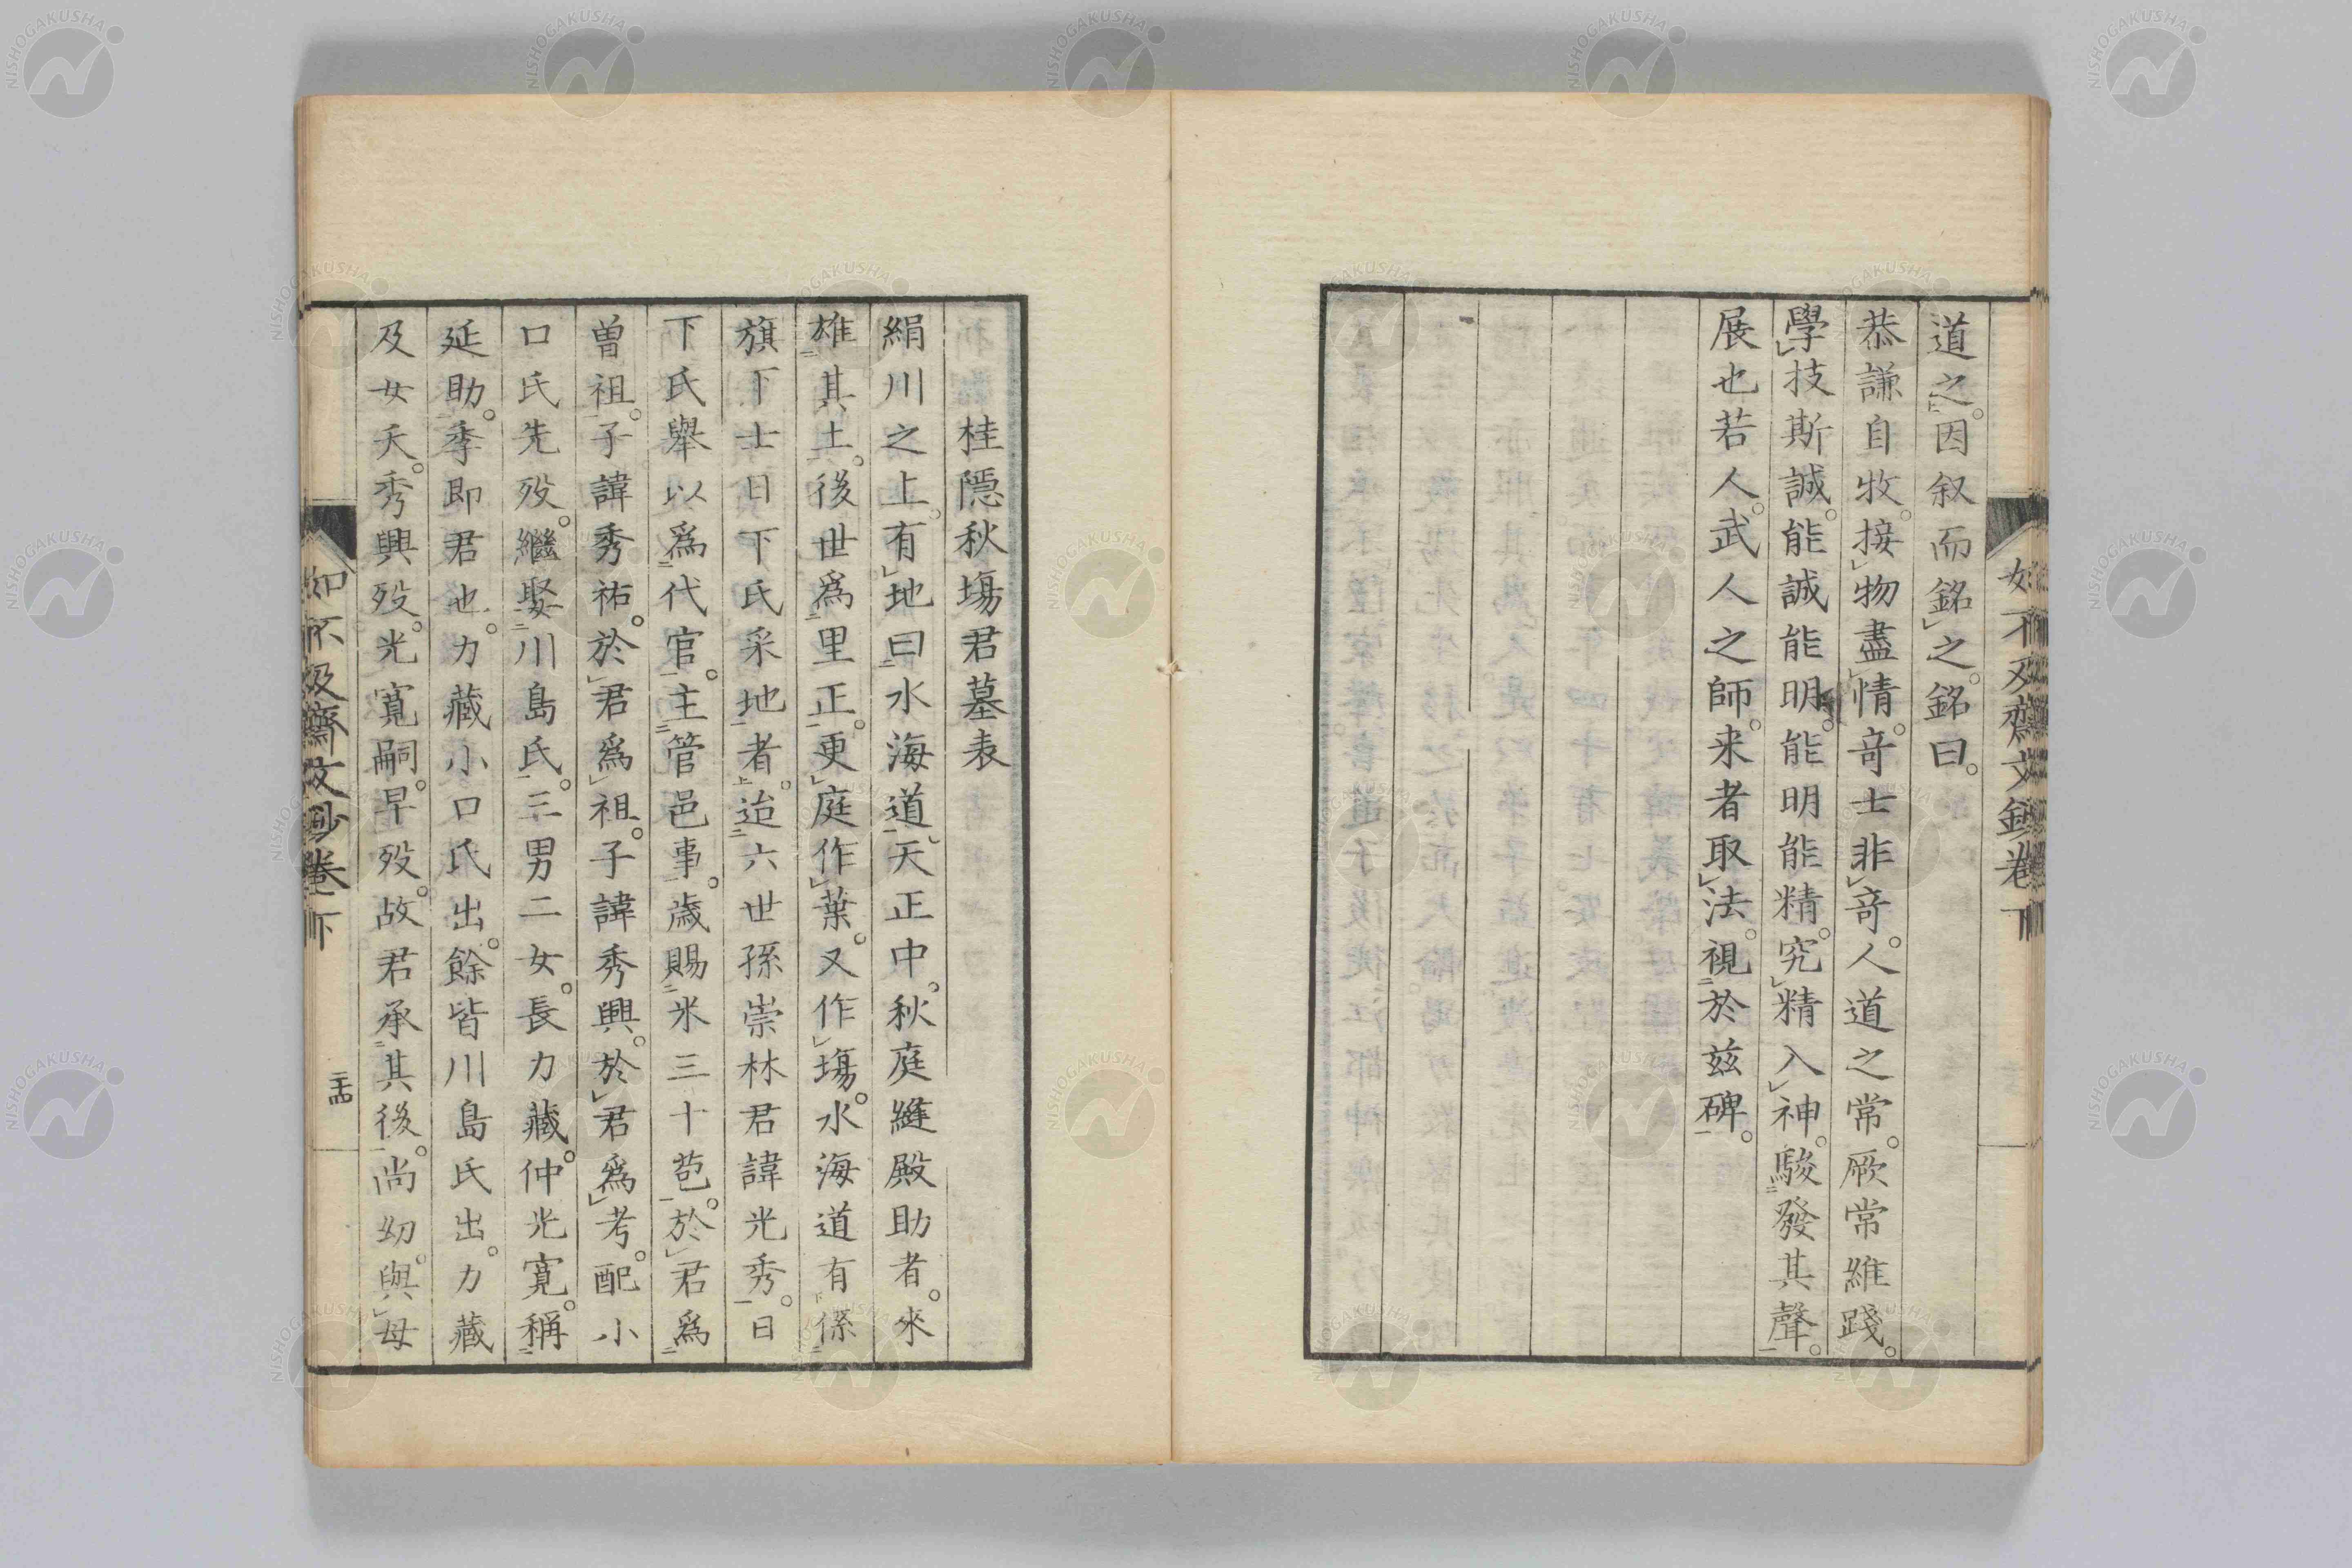 道之。因叙而銘之。銘曰。
恭謙自牧。接物盡情。竒士非竒。人道之常。厥常維踐。
學技斯誠。能誠能明。能明能精。究精入神。駿發其聲。
展也若人。武人之師。来者取法。視於茲碑。
桂隱秋塲君墓表
絹川之上。有地曰水海道。天正中。秋庭縫殿助者。來
雄其土。後世爲里正。更庭作葉。又作塲。水海道有係
旗下士日下氏采地者。迨六世孫崇林君諱光秀。日
下氏舉以爲代官。主管邑事。歲賜米三十苞。於君爲
曽祖。子諱秀祐。於君爲祖。子諱秀興。於君爲考。配小
口氏先歿。繼娶川島氏。三男二女。長力藏。仲光寛。稱
延助。季即君也。力藏小口氏出。餘皆川島氏出。力藏
及女夭。秀興歿。光寛嗣。早歿。故君承其後。尚幼。與母
如不及齋文鈔卷下
二十四
NISHOGAKUSHA